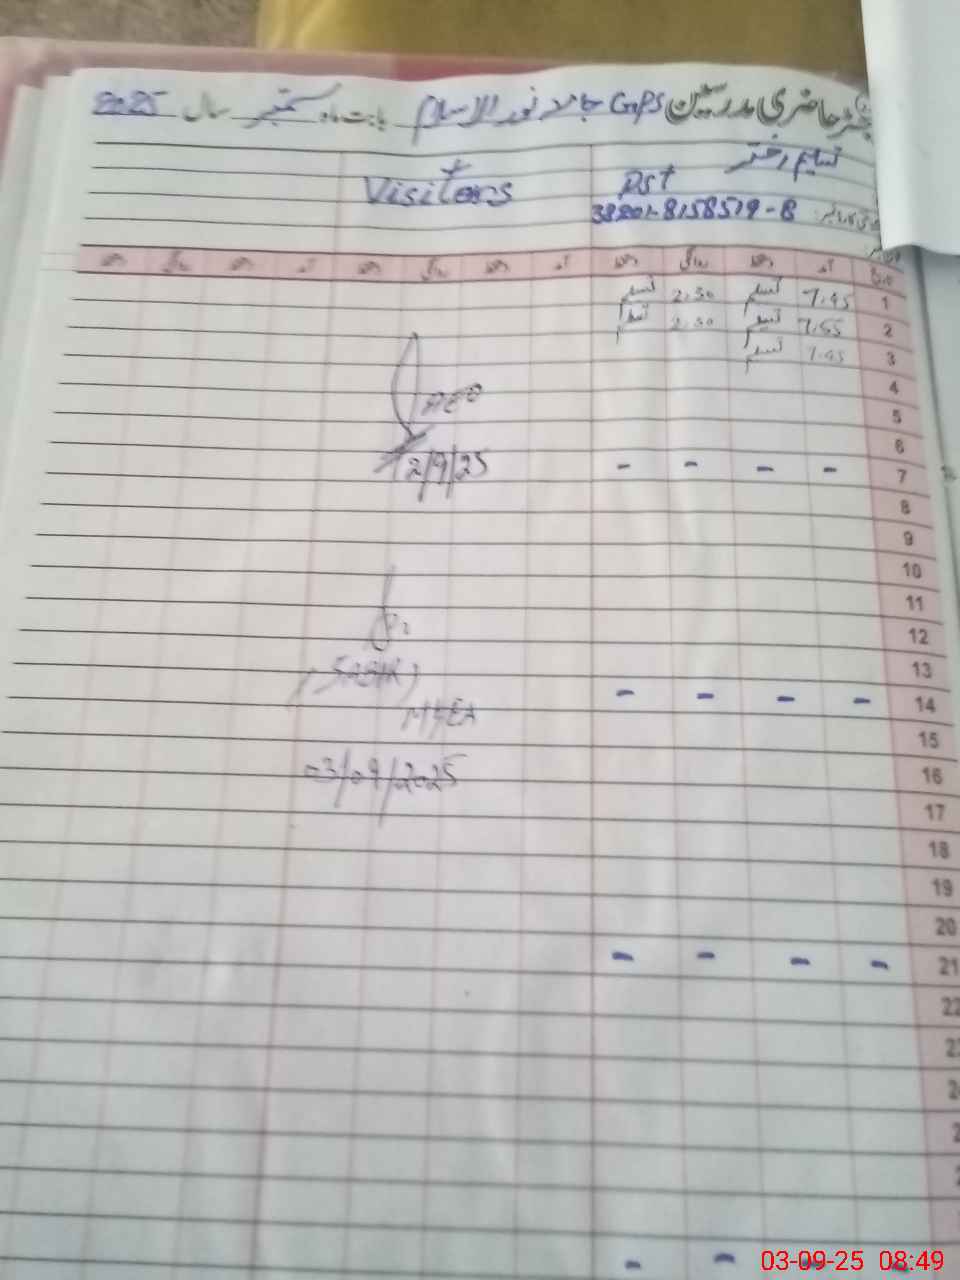 رجسٹر حاضری مدرسین GPS جامد نور الاسلام بابت ماہ ستمبر سال 2025
تسلیم اختر
Visitors PST
38201-8158519-8
تاریخ آمد دستخط روانگی دستخط آمد دستخط روانگی دستخط آمد دستخط روانگی دستخط
1 7.45 تسلیم 2.30 تسلیم
2 7.55 تسلیم 2.30 تسلیم
3 7.45 تسلیم
4
AEO
5
6
2/9/25
7 - - - -
8
9
10
11
12
13
14 - - - -
MEA
15
03/09/2025
16
17
18
19
20
21 - - - -
22
03-09-25 08:49